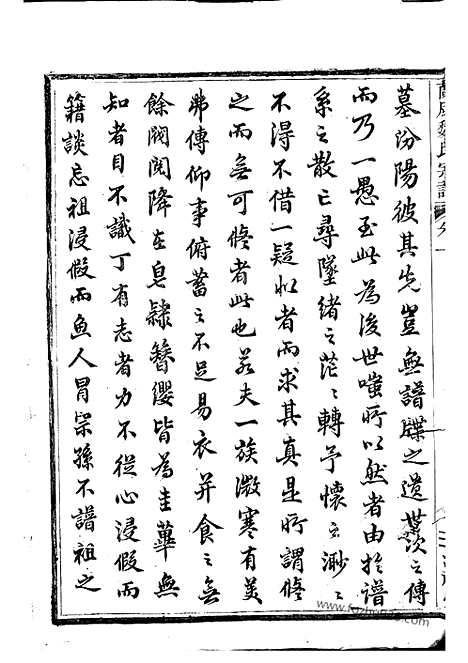 墓汾陽彼其先豈無譜牒之遺羹之傳
而乃一愚至此為後世嗤所以然者由於譜
系之散亡尋墜緒之茫〻轉予懷之渺〻
不得不借一疑似者而求其真是所謂修
之而無可修者此也若夫一族微寒有美
弗傳仰事俯蓄之不足易衣并食之無
餘閥閱降在皂隸簪纓皆為圭蓽無
知者目不識丁有志者力不從心浸假而
籍談忘祖浸假而魚人冒宗孫不譜祖之
魏氏宗譜